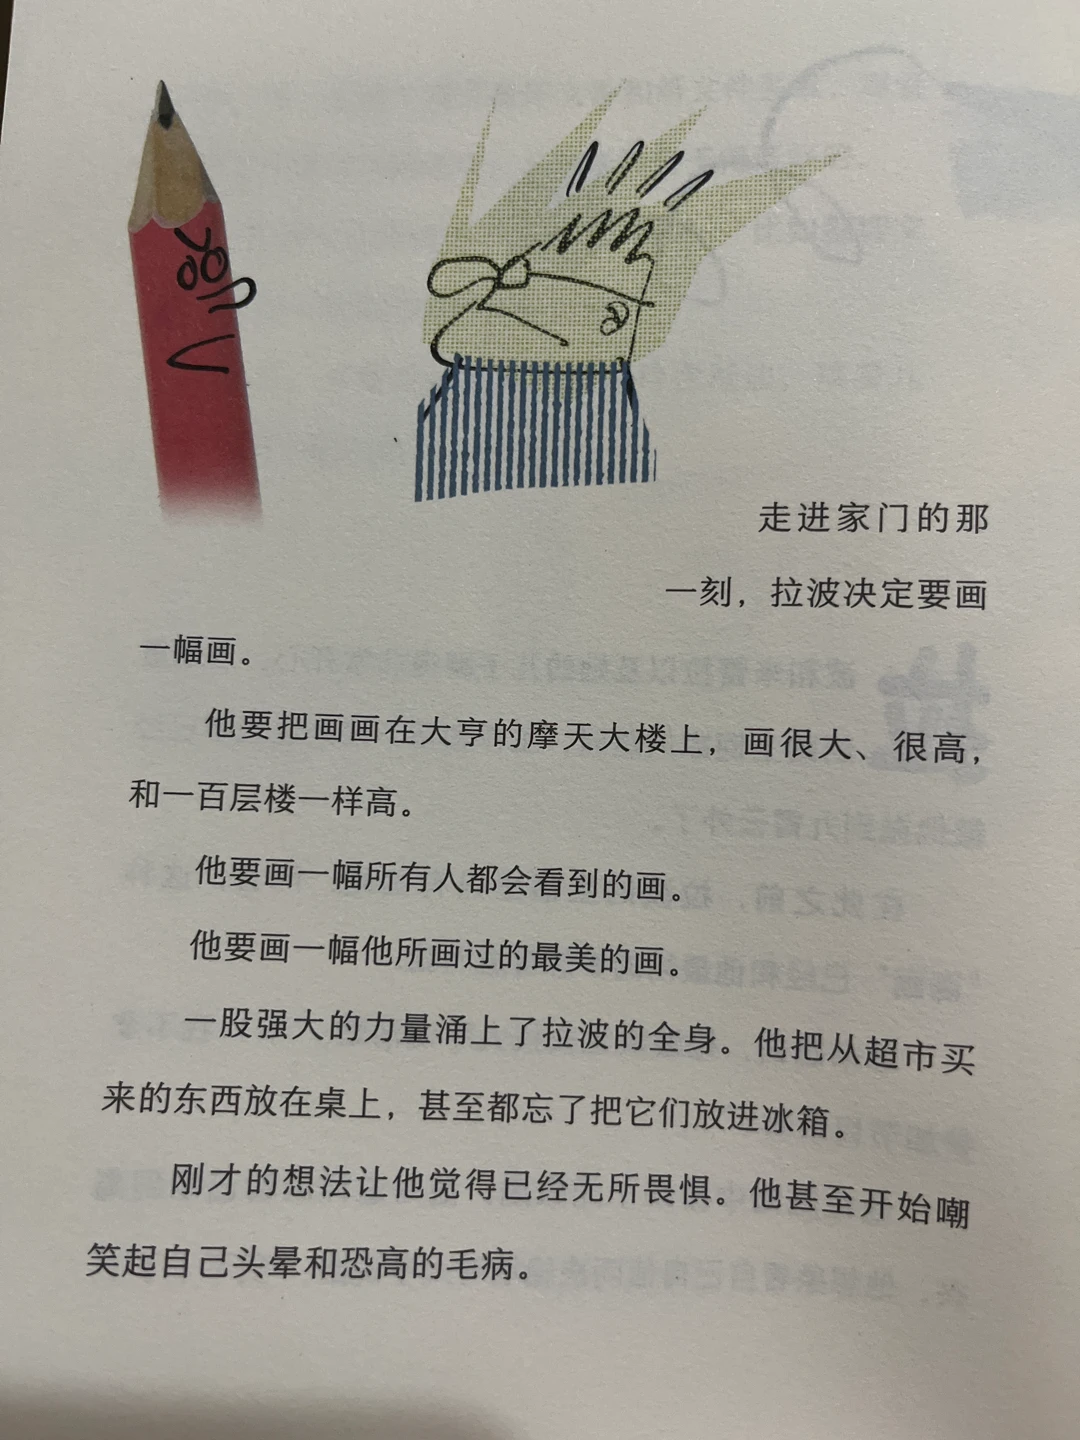 走进家门的那
一刻，拉波决定要画
一幅画。
他要把画画在大亨的摩天大楼上，画很大、很高，
和一百层楼一样高。
他要画一幅所有人都会看到的画。
他要画一幅他所画过的最美的画。
一股强大的力量涌上了拉波的全身。他把从超市买
来的东西放在桌上，甚至都忘了把它们放进冰箱。
刚才的想法让他觉得已经无所畏惧。他甚至开始嘲
笑起自己头晕和恐高的毛病。